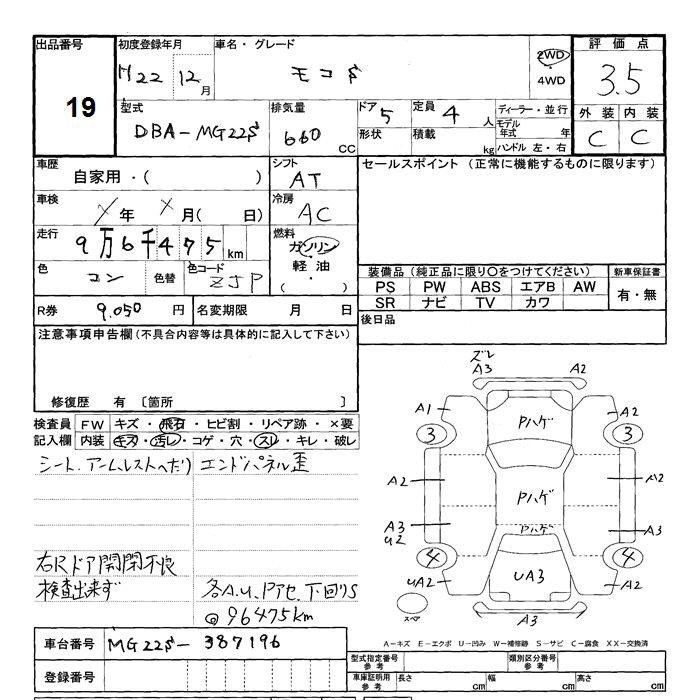 出品番号 初度登録年月 車名・グレード 評価点
19 H22 12月 モコS 2WD ・ 4WD 3.5
型式 排気量 ドア 5 定員 4人 ディーラー・並行 外装 内装
DBA-MG22S 660 CC 形状 積載 kg モデル年式 年 ハンドル 左・右 C C
車歴 シフト セールスポイント (正常に機能するものに限ります)
自家用・( ) AT
車検 冷房
X年 X月( 日) AC
走行 燃料
9万6千475km ガソリン・軽油・( )
色 色替 色コード
コン ZJP
装備品(純正品に限り○をつけてください) 新車保証書
PS PW ABS エアB AW 有・無
SR ナビ TV カワ
R券 9.050円 名変期限 月 日
後日品
注意事項申告欄(不具合内容等は具体的に記入して下さい)
修復歴 有 〔箇所 〕
検査員 FW キズ・飛石・ヒビ割・リペア跡・×要
記入欄 内装 キズ・汚レ・コゲ・穴・スレ・キレ・破レ
シート、アームレストへたり エンドパネル歪
右Rドア開閉不良
検査出来ず 各A.U、Pアセ、下回りS
@96475km
ズレ
A3 A2
A1 Pハゲ A2
3 3
A2 Pハゲ A2
A3 Pハゲ A3
U2
4 4
UA2 UA3 A2
スペア A3
A-キズ E-エクボ U-凹み W-補修跡 S-サビ C-腐食 XX-交換済
車台番号 MG22S-387196
型式指定番号 参考 類別区分番号 参考
登録番号
車庫証明用 参考 長さ cm 幅 cm 高さ cm